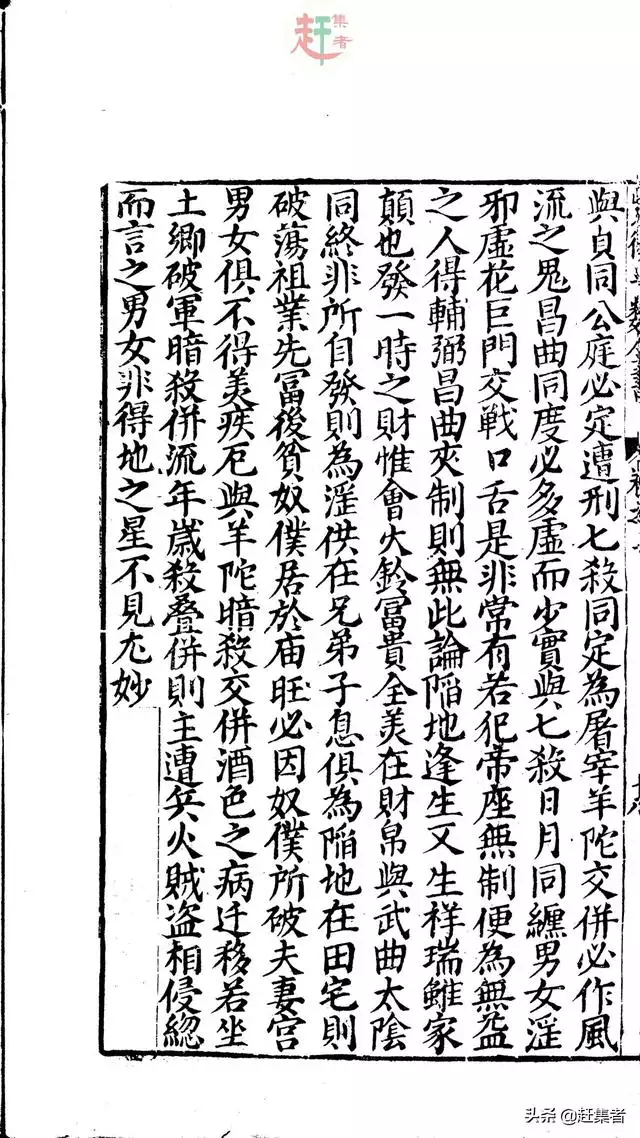 赶集者
與貞同公庭必定遭刑七殺同定為屠宰羊陀交併必作風
流之鬼昌曲同度必多虛而少實與七殺日月同纏男女淫
邪虛花巨門交戰口舌是非常有若犯帝座無制便為無益
之人得輔弼昌曲夾制則無此論陷地逢生又生祥瑞雖家
顛也發一時之財惟會火鈴冨貴全美在財帛與武曲太陰
同終非所自發則為淫供在兄弟子息俱為陷地在田宅則
破蕩祖業先冨後貧奴僕居於庙旺必因奴僕所破夫妻宮
男女俱不得美疾厄與羊陀暗殺交併酒色之病迁移若坐
土鄉破軍暗殺併流年歲殺叠併則主遭兵火賊盗相侵縂
而言之男女非得地之星不見尤妙
头条 @赶集者